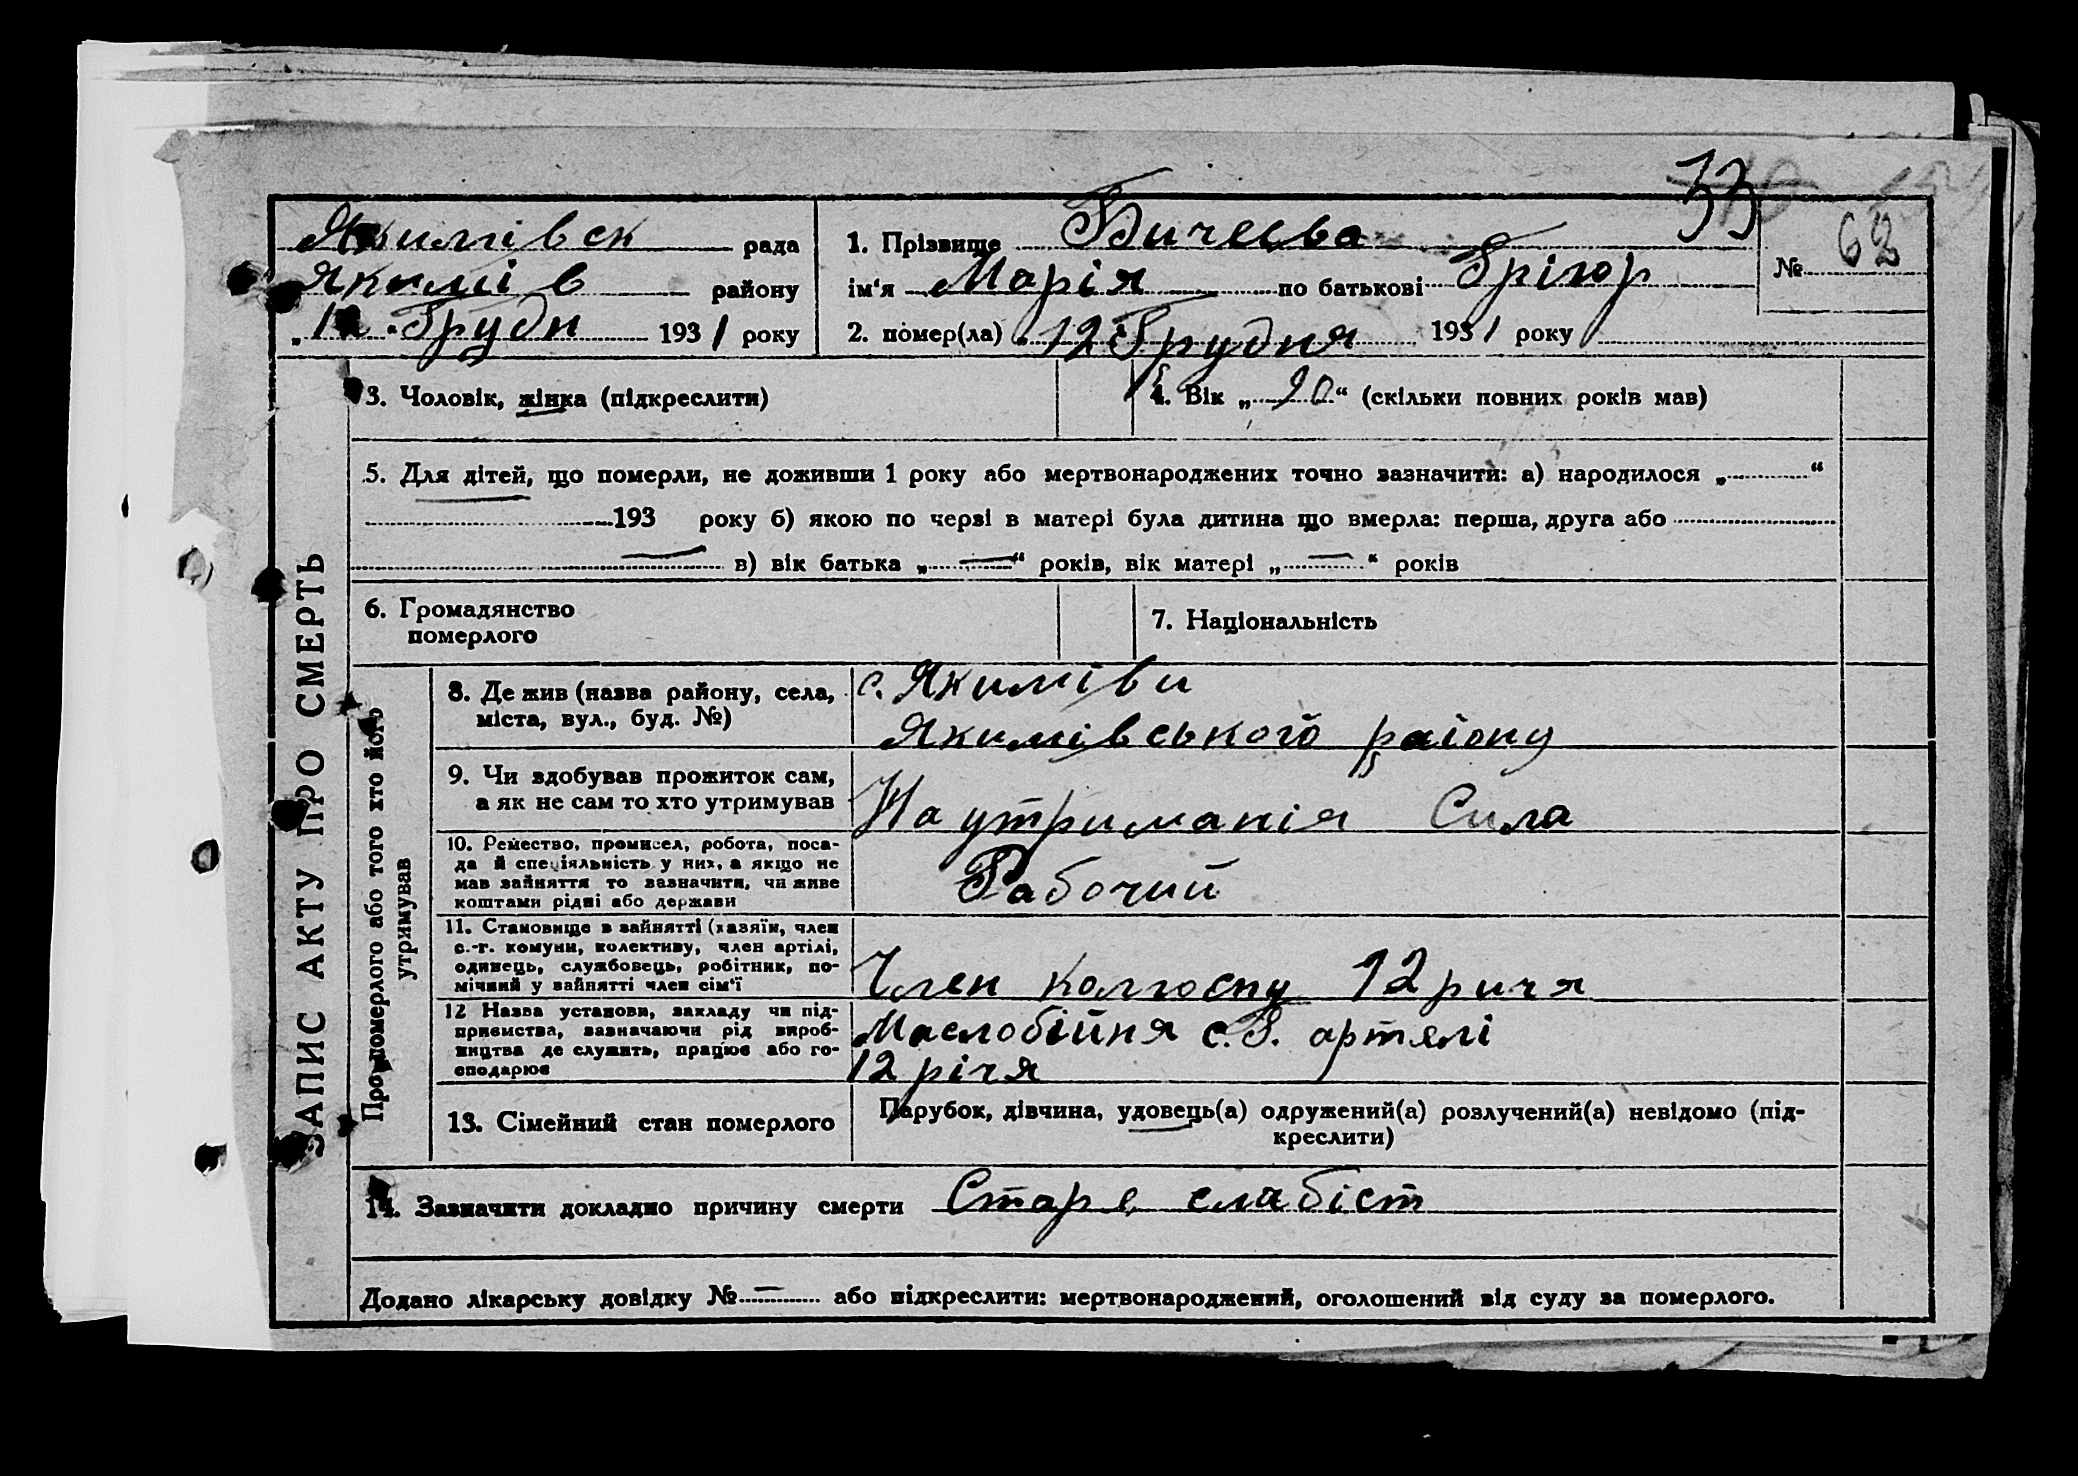 33
Якимівск рада
Якимів району
„12 Грудн 1931 року
1. Прізвище Бичеєва
ім‘я Марія по батькові Грігор
2. помер(ла) 12 Грудня 1931 року
№ 62
ЗАПИС АКТУ ПРО СМЕРТЬ
3. Чоловік, жінка (підкреслити)
4. Вік „90“ (скільки повних років мав)
5. Для дітей, що померли, не доживши 1 року або мертвонароджених точно зазначити: а) народилося „ “
193 року б) якою по черзі в матері була дитина що вмерла: перша, друга або
в) вік батька „—“ років, вік матері „—“ років
6. Громадянство
померлого
7. Національність
Про померлого або того хто його
утримував
8. Де жив (назва району, села,
міста, вул., буд. №)
с. Якимівки
Якимівського району
9. Чи здобував прожиток сам,
а як не сам то хто утримував
На утриманія Сила
10. Ремество, промисел, робота, поса-
да й спеціяльність у них, а якщо не
мав зайняття то зазначити, чи живе
коштами рідні або держави
Рабочий
11. Становище в зайнятті (хазяїн, член
с.-г. комуни, колективу, член артілі,
одинець, службовець, робітник, по-
мічний у зайнятті член сім‘ї
Член колгоспу 12 рича
12 Назва установи, закладу чи під-
приємства, зазначаючи рід вироб-
ництва де служить, працює або го-
сподарює
Маслобійня с. г. артялі
12 річя
13. Сімейний стан померлого
Парубок, дівчина, удовець(а) одружений(а) розлучений(а) невідомо (під-
креслити)
14. Зазначити докладно причину смерти Старе слабіст
Додано лікарську довідку №— або підкреслити: мертвонароджений, оголошений від суду за померлого.